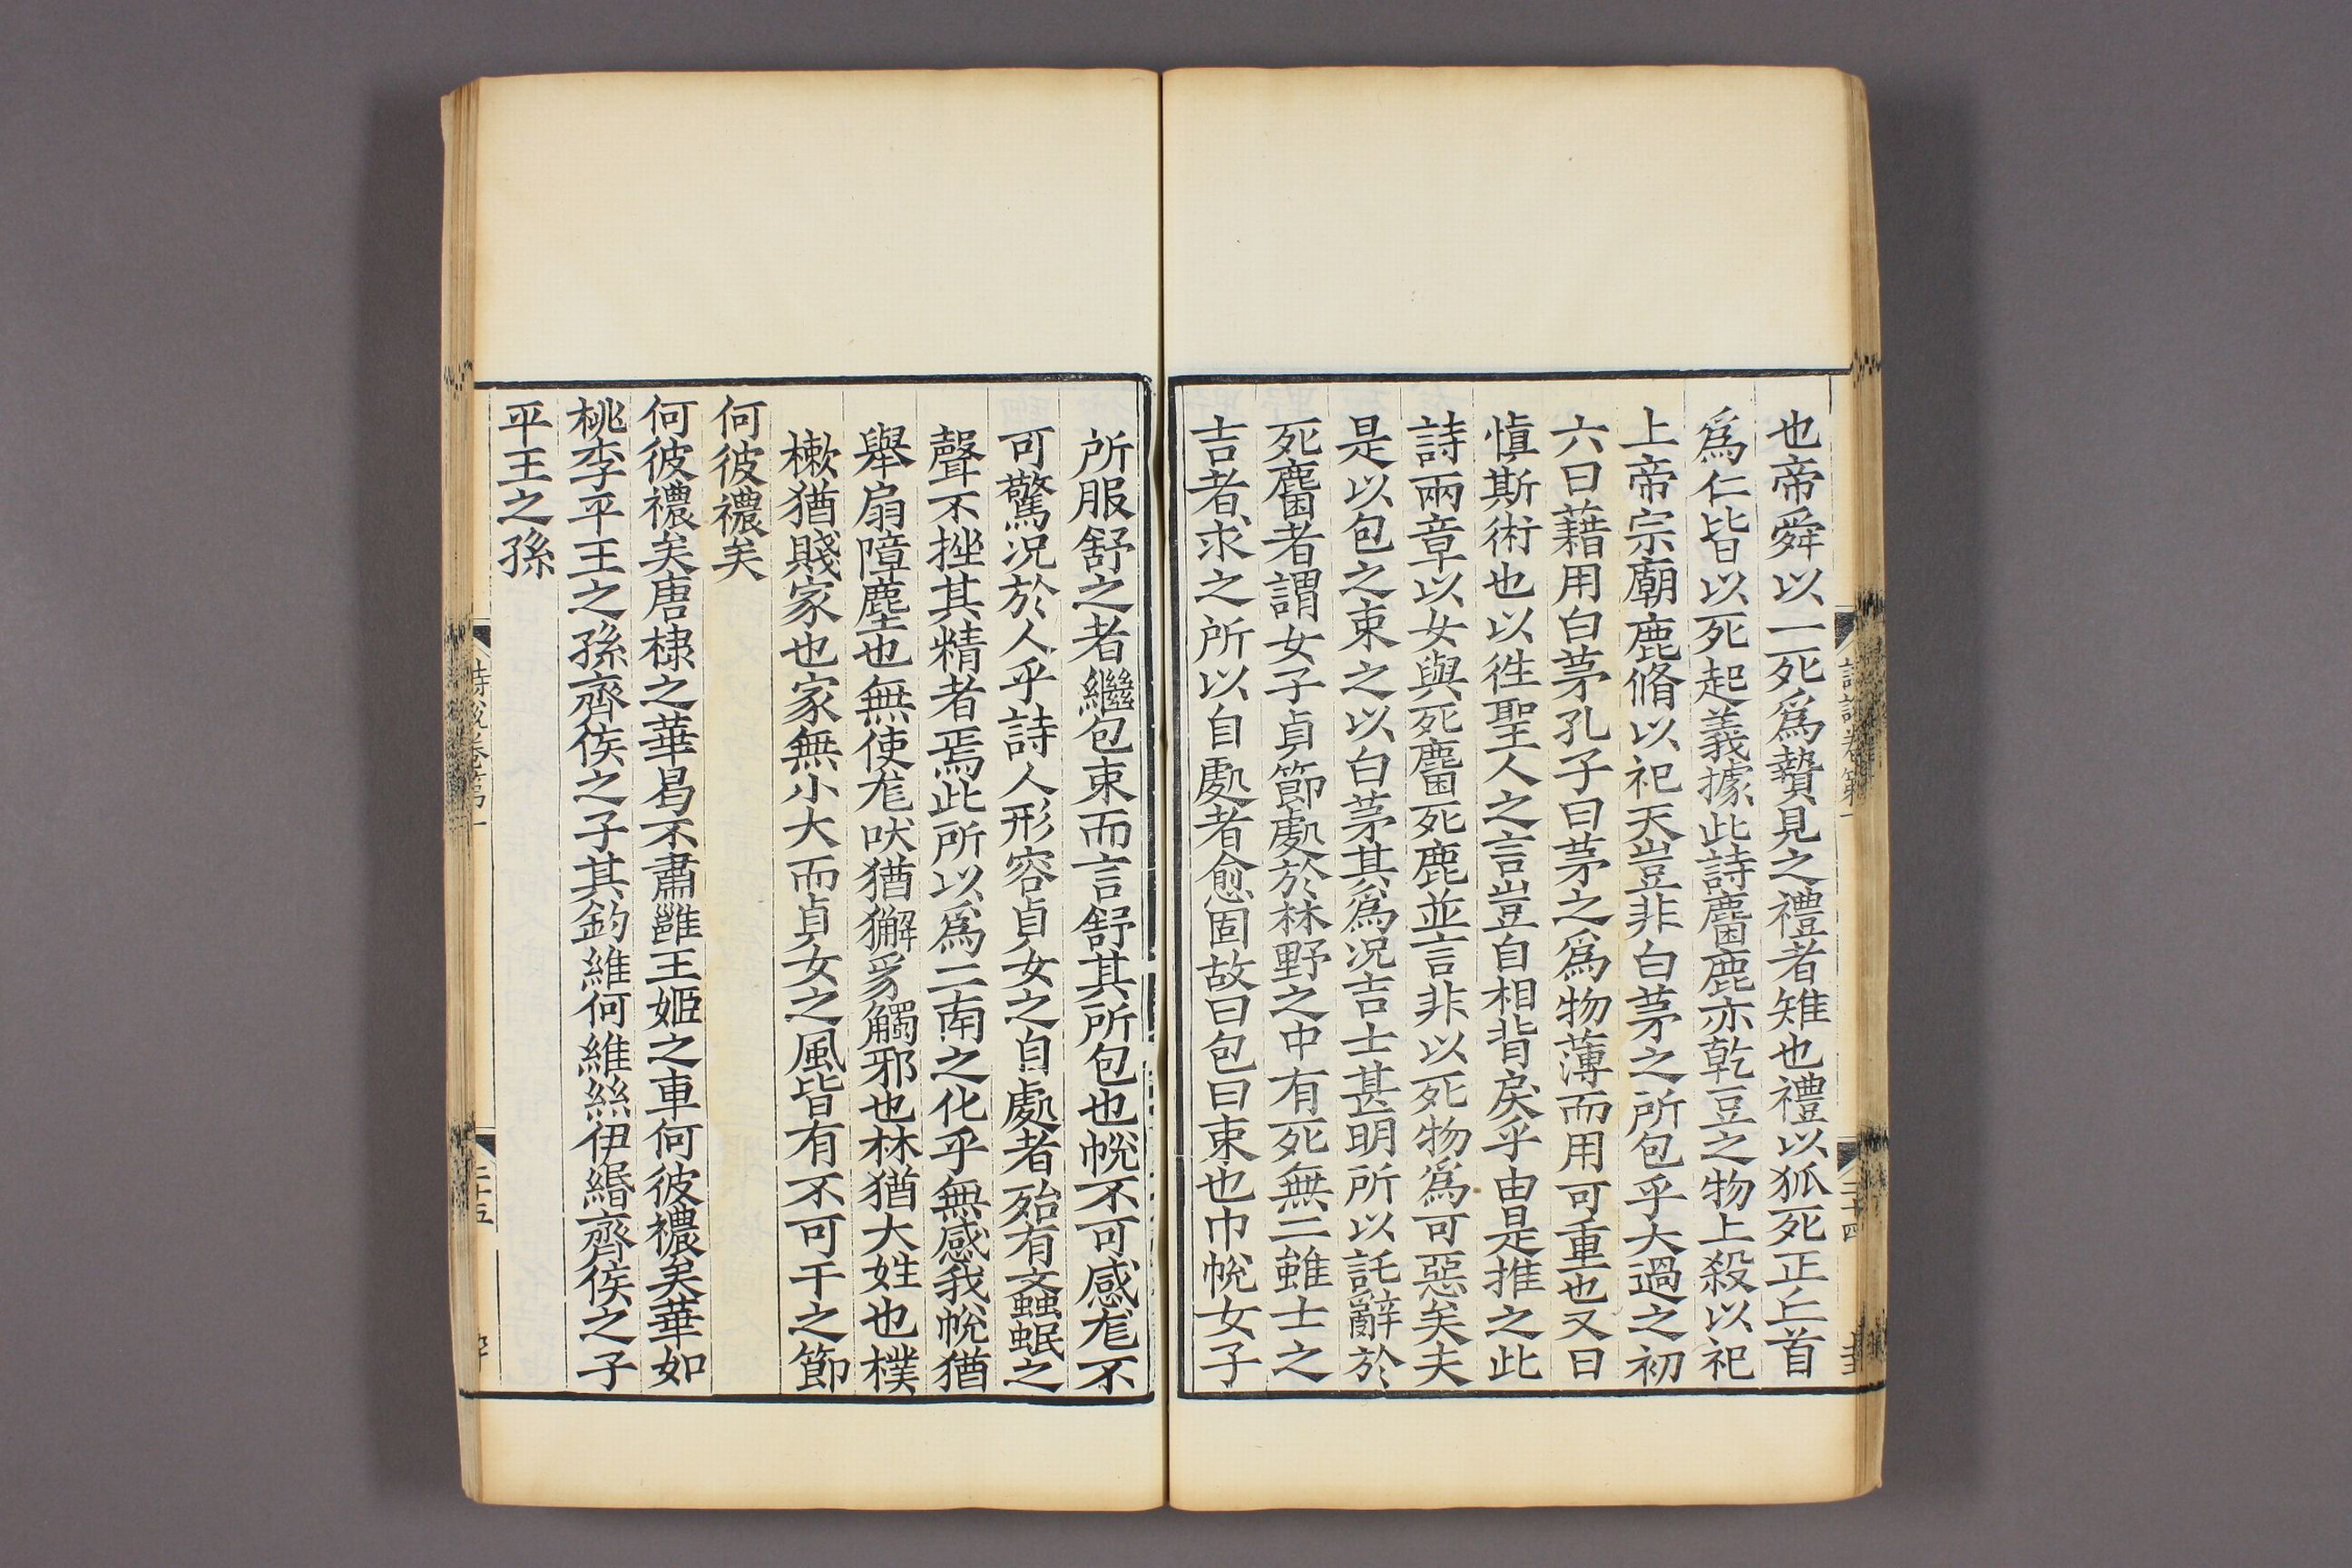 也帝舜以一死爲贄見之禮者雉也禮以狐死正丘首
爲仁皆以死起義據此詩麕鹿亦乾豆之物上殺以祀
上帝宗廟鹿脩以祀天豈非白茅之所包乎大過之初
六曰藉用白茅孔子曰茅之爲物薄而用可重也又曰
愼斯術也以徃聖人之言豈自相背戾乎由是推之此
詩兩章以女與死麕死鹿並言非以死物爲可惡矣夫
是以包之束之以白茅其爲況吉士甚明所以託辭於
死麕者謂女子貞節處於林野之中有死無二雖士之
吉者求之所以自處者愈固故曰包曰束也巾帨女子
所服舒之者繼包束而言舒其所包也帨不可感尨不
可驚況於人乎詩人形容貞女之自處者殆有蚉蝱蚊之
聲不挫其精者焉此所以爲二南之化乎無感我帨猶
舉扇障塵也無使尨吠猶獬豸觸邪也林猶大姓也樸
樕猶賤家也家無小大而貞女之風皆有不可干之節
何彼襛矣
何彼襛矣唐棣之華曷不肅雝王姬之車何彼襛矣華如
桃李平王之孫齊侯之子其釣維何維絲伊緡齊侯之子
平王之孫
詩說卷第一
二十五